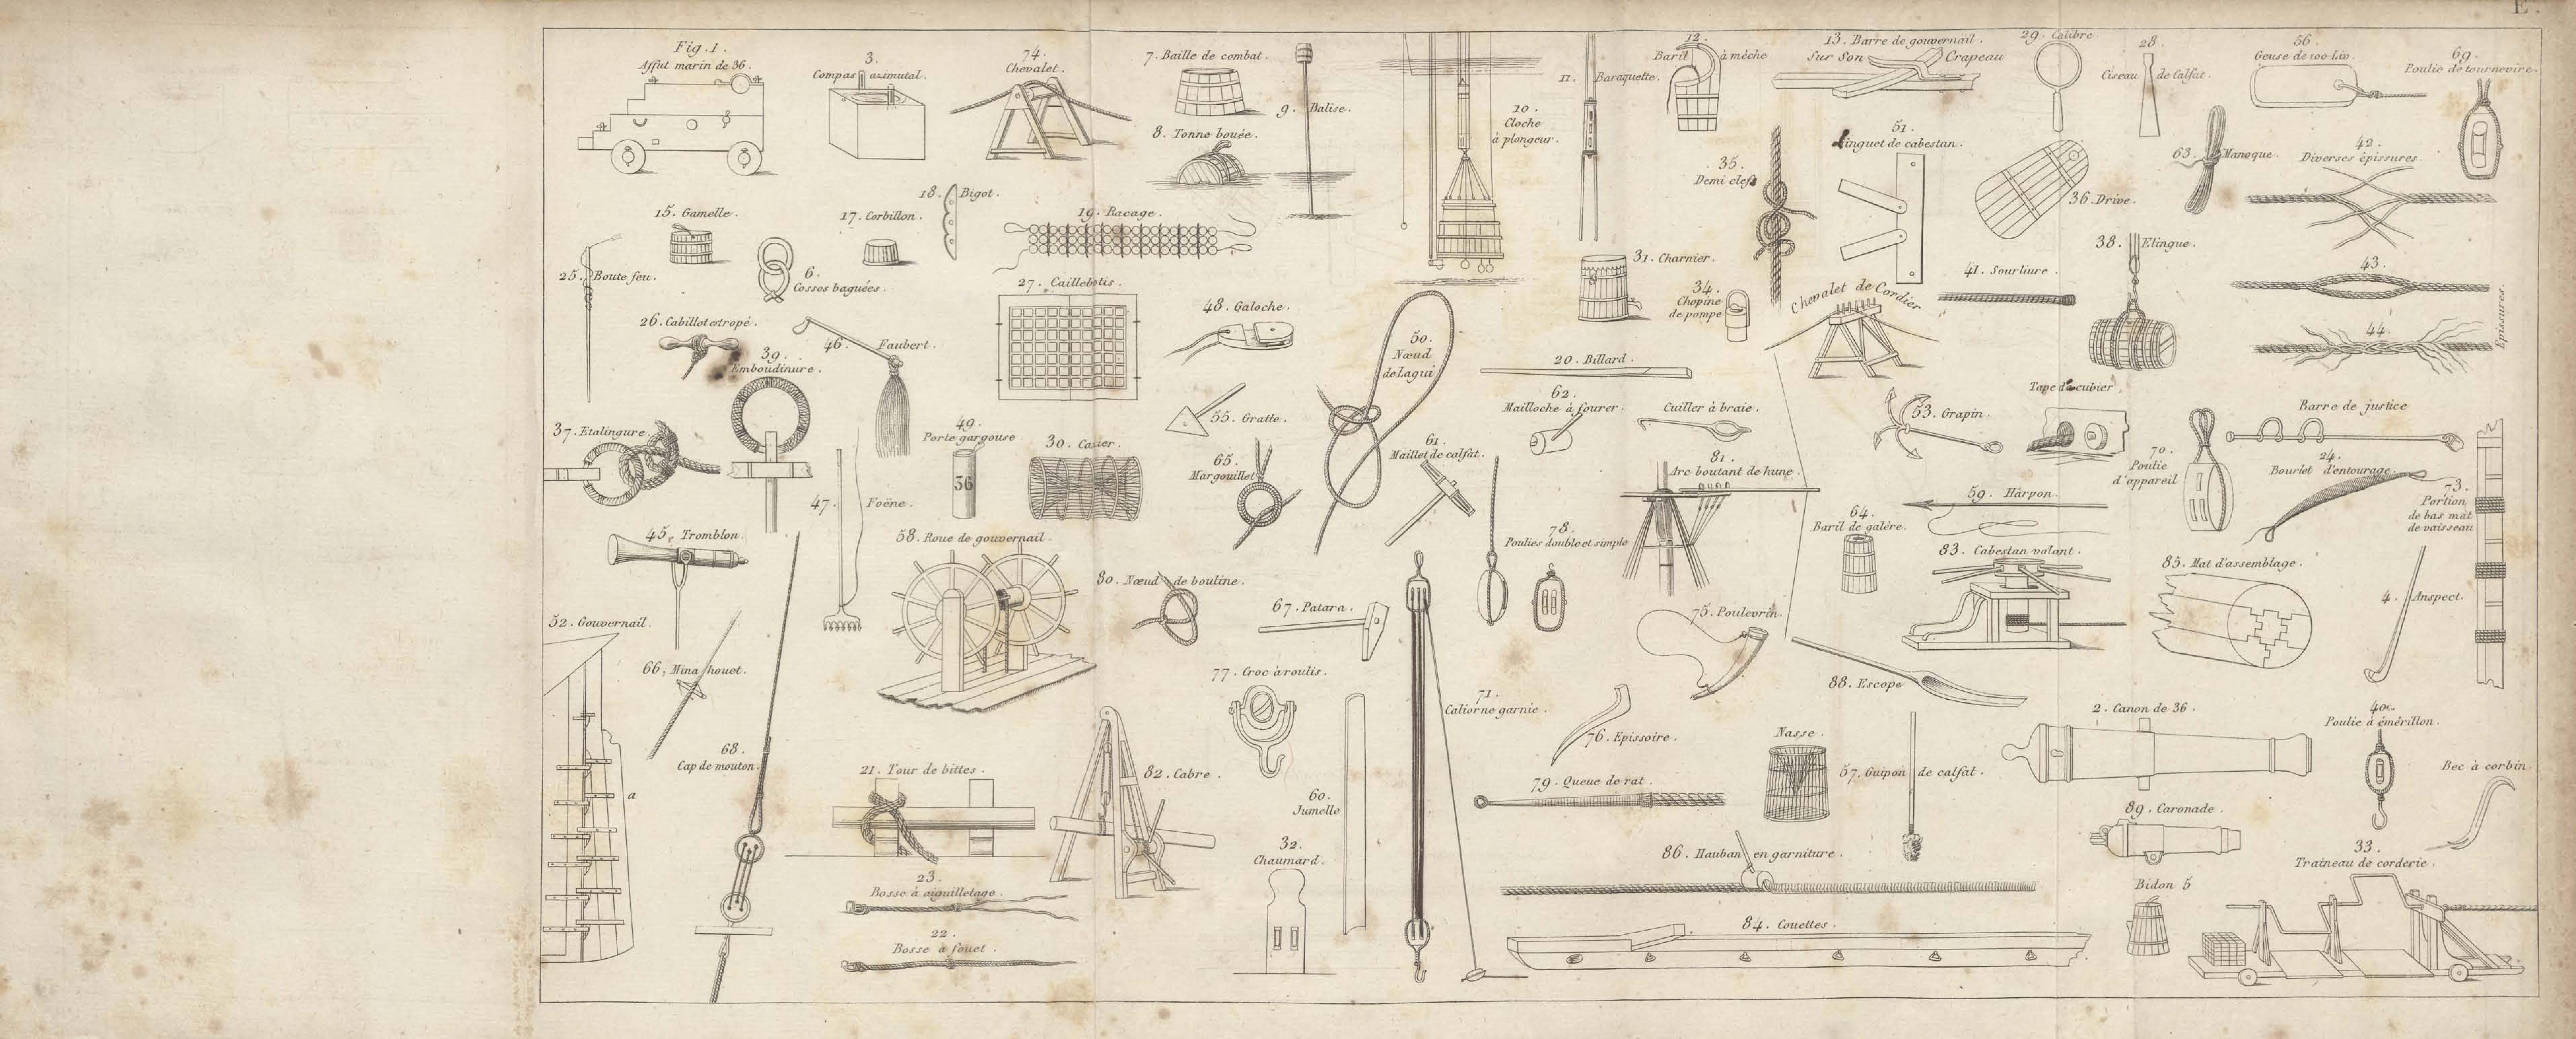 E.
Fig. 1.
Affut marin de 36.
3.
Compas azimutal.
74.
Chevalet.
7. Baille de combat.
8. Tonne bouée.
9. Balise.
10
Cloche
à plongeur.
11. Baraquette.
12.
Baril à mèche
13. Barre de gouvernail.
Sur Son Crapeau
29. Calibre.
28.
Ciseau de Calfat.
56
Geuse de 100 Liv.
69.
Poulie de tournevire.
15. Gamelle.
17. Corbillon.
18. Bigot.
19. Racage.
35.
Demi clefs
51.
Linguet de cabestan.
36. Drive.
63. Manoque.
42.
Diverses épissures.
25. Boute feu.
6.
Cosses baguées.
27. Caillebotis.
31. Charnier.
34.
Chopine
de pompe
Chevalet de Cordier
41. Sourliure.
38. Elingue.
43.
44.
Epissures.
26. Cabillot estropé.
39.
Emboudinure.
46. Faubert.
48. Galoche.
50.
Nœud
de Lagui
20. Billard.
62.
Mailloche à fourer.
Cuiller à braie.
53. Grapin.
Tape d'écubier
Barre de justice
37. Etalingure.
49.
Porte gargouse
36
30. Casier.
55. Gratte.
65.
Margouillet
61.
Maillet de calfat.
81.
Arc boutant de hune.
59. Harpon.
70.
Poulie
d'appareil
24.
Bourlet d'entourage.
73.
Portion
de bas mat
de vaisseau
47. Foëne.
45. Tromblon.
58. Roue de gouvernail.
80. Nœud de bouline.
78.
Poulies double et simple
64.
Baril de galère.
83. Cabestan volant.
85. Mat d'assemblage.
4. Anspect.
52. Gouvernail.
a
66. Mina houet.
67. Patara.
75. Poulevrin.
77. Croc à roulis.
71.
Caliorne garnie.
88. Escope
2. Canon de 36.
40
Poulie à émérillon.
68.
Cap de mouton.
21. Tour de bittes.
82. Cabre.
60.
Jumelle
76. Epissoire.
Nasse.
57. Guipon de calfat.
Bec à corbin.
79. Queue de rat.
89. Caronade.
32.
Chaumard.
86. Hauban en garniture.
33.
Traineau de corderie.
23.
Bosse à aiguilletage.
22.
Bosse à fouet.
84. Couettes.
Bidon 5